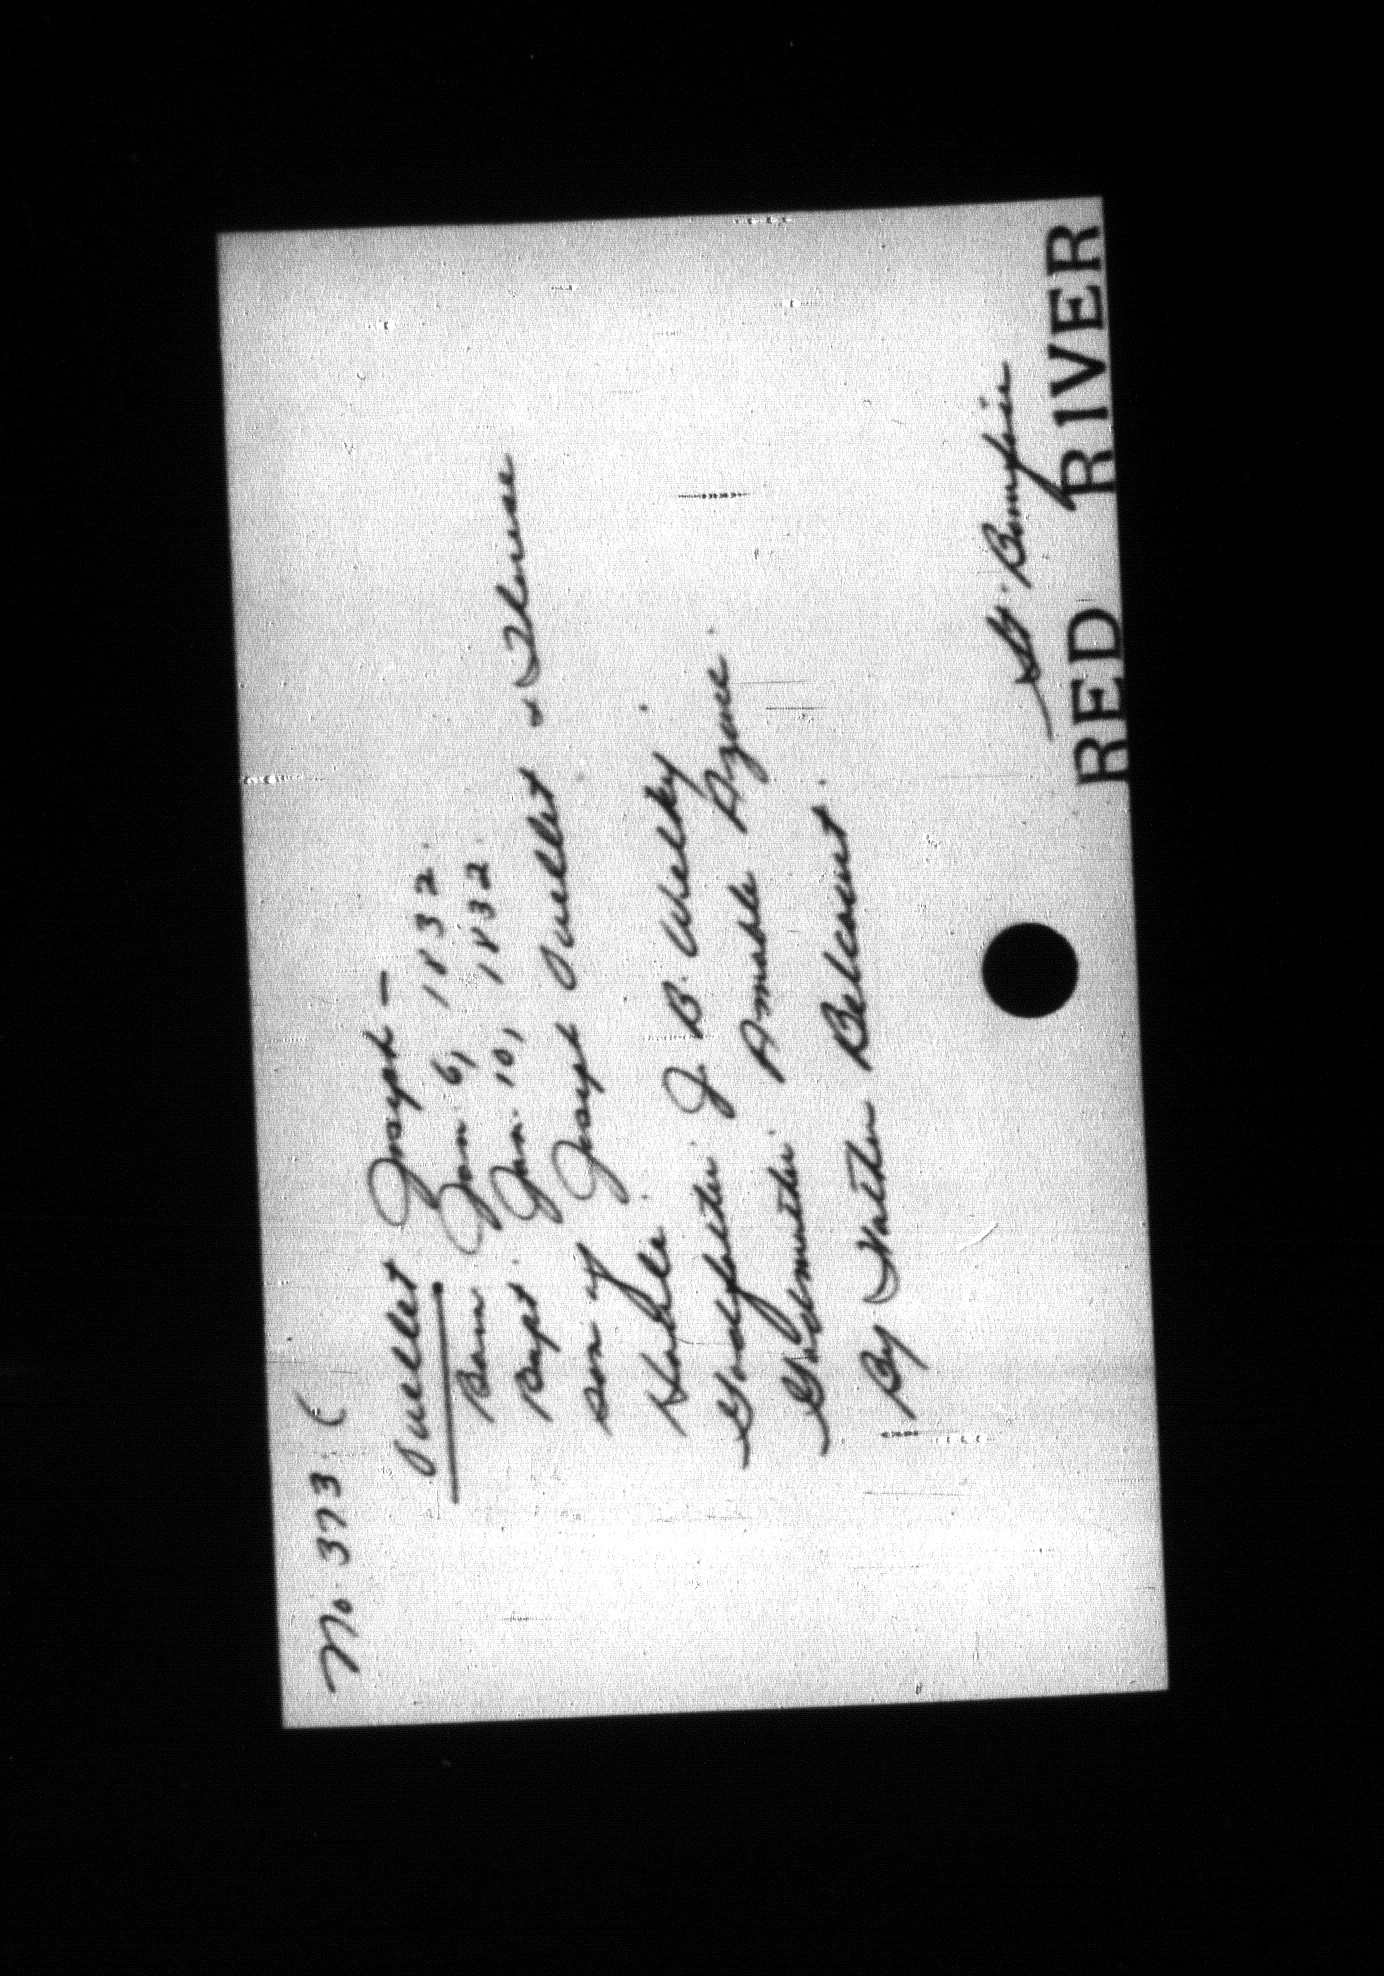 No. 373 (
Ouellet Joseph —
Born Jan 6, 1832.
Bapt. Jan. 10, 1832
son of Joseph Ouellet & Therese
Houle.
Godfather J. B. Welky.
Godmother. Amable Azure.
By Father Belcourt.
St. Boniface
RED RIVER